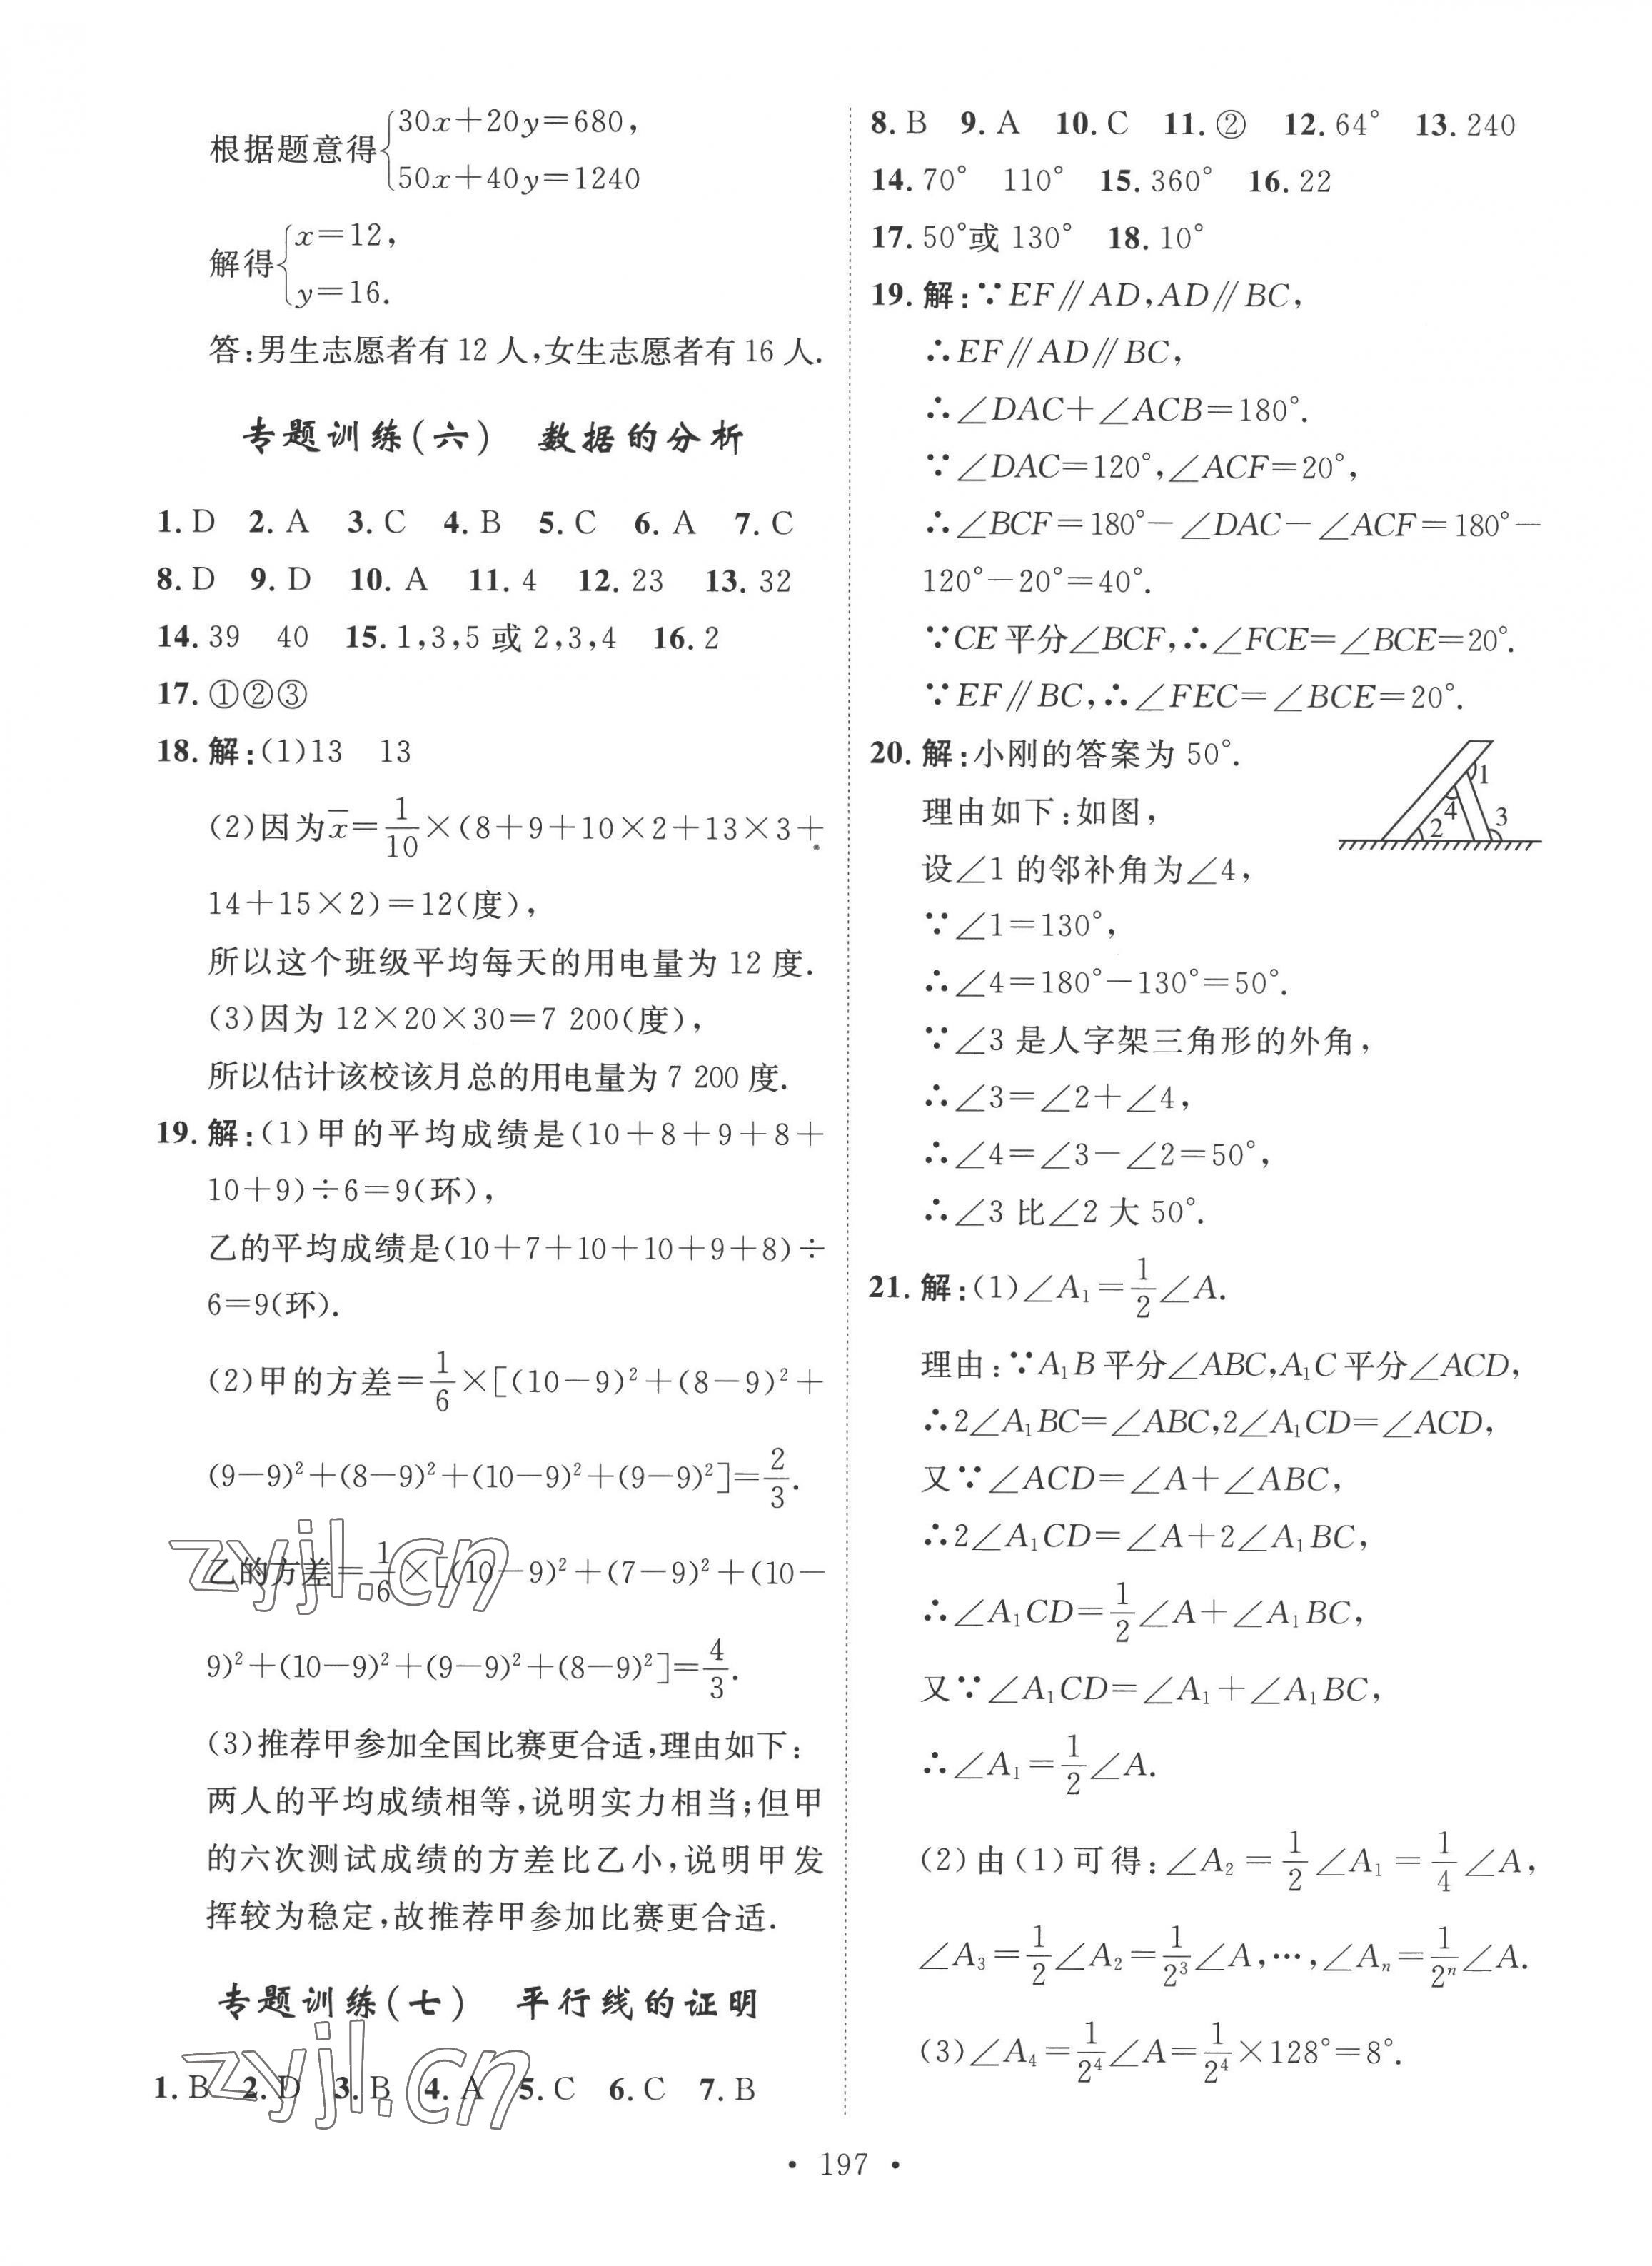 根据题意得{30x+20y=680,
50x+40y=1240
解得{x=12,
y=16.
答:男生志愿者有 12 人,女生志愿者有 16 人.
专题训练(六) 数据的分析
1. D 2. A 3. C 4. B 5. C 6. A 7. C
8. D 9. D 10. A 11. 4 12. 23 13. 32
14. 39 40 15. 1,3,5 或 2,3,4 16. 2
17. ①②③
18. 解:(1)13 13
(2)因为x̄=1/10×(8+9+10×2+13×3+
14+15×2)=12(度),
所以这个班级平均每天的用电量为 12 度.
(3)因为 12×20×30=7 200(度),
所以估计该校该月总的用电量为 7 200 度.
19. 解:(1)甲的平均成绩是(10+8+9+8+
10+9)÷6=9(环),
乙的平均成绩是(10+7+10+10+9+8)÷
6=9(环).
(2)甲的方差=1/6×[(10-9)²+(8-9)²+
(9-9)²+(8-9)²+(10-9)²+(9-9)²]=2/3.
乙的方差=1/6×[(10-9)²+(7-9)²+(10-
9)²+(10-9)²+(9-9)²+(8-9)²]=4/3.
(3)推荐甲参加全国比赛更合适,理由如下:
两人的平均成绩相等,说明实力相当;但甲
的六次测试成绩的方差比乙小,说明甲发
挥较为稳定,故推荐甲参加比赛更合适.
专题训练(七) 平行线的证明
1. B 2. D 3. B 4. A 5. C 6. C 7. B
8. B 9. A 10. C 11. ② 12. 64° 13. 240
14. 70° 110° 15. 360° 16. 22
17. 50°或 130° 18. 10°
19. 解:∵EF∥AD,AD∥BC,
∴EF∥AD∥BC,
∴∠DAC+∠ACB=180°.
∵∠DAC=120°,∠ACF=20°,
∴∠BCF=180°-∠DAC-∠ACF=180°-
120°-20°=40°.
∵CE 平分∠BCF,∴∠FCE=∠BCE=20°.
∵EF∥BC,∴∠FEC=∠BCE=20°.
20. 解:小刚的答案为 50°.
理由如下:如图,
设∠1 的邻补角为∠4,
1
4
2
3
∵∠1=130°,
∴∠4=180°-130°=50°.
∵∠3 是人字架三角形的外角,
∴∠3=∠2+∠4,
∴∠4=∠3-∠2=50°,
∴∠3 比∠2 大 50°.
21. 解:(1)∠A₁=1/2∠A.
理由:∵A₁B 平分∠ABC,A₁C 平分∠ACD,
∴2∠A₁BC=∠ABC,2∠A₁CD=∠ACD,
又∵∠ACD=∠A+∠ABC,
∴2∠A₁CD=∠A+2∠A₁BC,
∴∠A₁CD=1/2∠A+∠A₁BC,
又∵∠A₁CD=∠A₁+∠A₁BC,
∴∠A₁=1/2∠A.
(2)由(1)可得:∠A₂=1/2∠A₁=1/4∠A,
∠A₃=1/2∠A₂=1/2³∠A,…,∠Aₙ=1/2ⁿ∠A.
(3)∠A₄=1/2⁴∠A=1/2⁴×128°=8°.
zyjl.cn
zyjl.cn
• 197 •